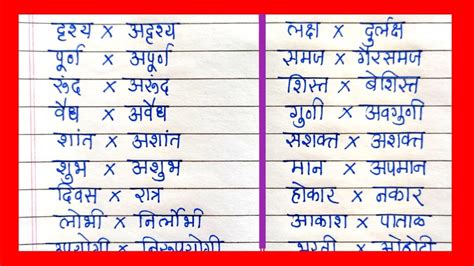 दृश्य × अदृश्य
पूर्ण × अपूर्ण
रूंद × अरूंद
वैध × अवैध
शांत × अशांत
शुभ × अशुभ
दिवस × रात्र
लोभी × निर्लोभी
उपयोगी × निरूपयोगी
लक्ष × दुर्लक्ष
समज × गैरसमज
शिस्त × बेशिस्त
गुणी × अवगुणी
सशक्त × अशक्त
मान × अपमान
होकार × नकार
आकाश × पाताळ
भरती × ओहोटी